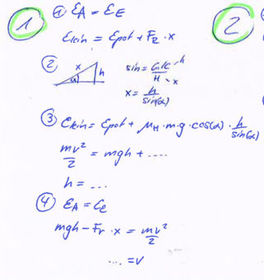 1
① ℰA = ℰE
Ekin = Epot + Fr · x
②
x
h
α
sin = GK/H = h/x
x = h/sin(α)
③ Ekin = Epot + μH · m · g · cos(α) · h/sin(α)
mv²/2 = mgh + ....
h = ...
④ ℰA = ℰE
mgh - Fr · x = mv²/2
... = v
2